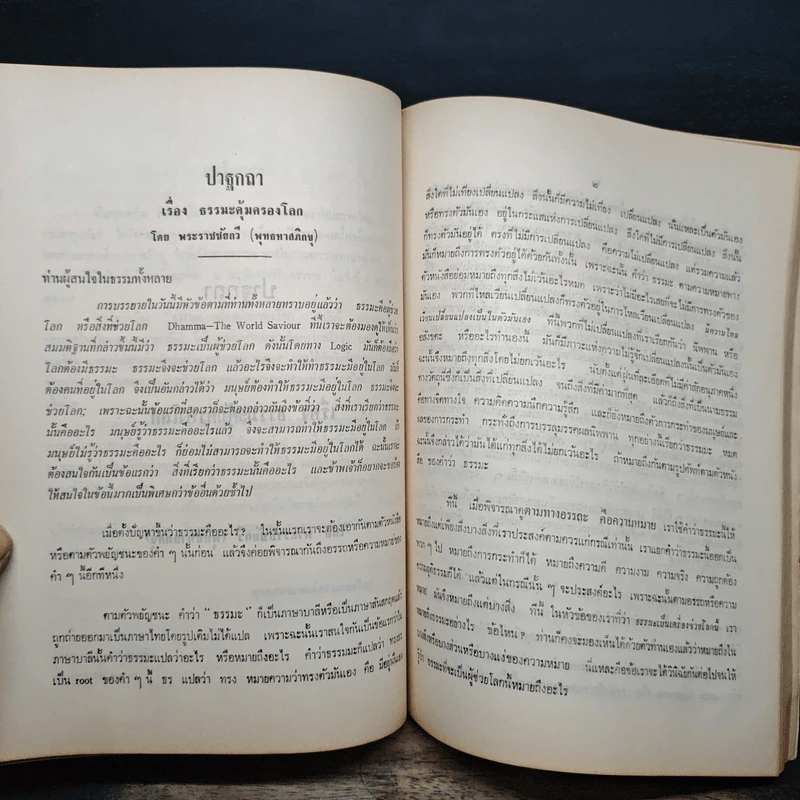 ปาฐกถา
เรื่อง ธรรมะคุ้มครองโลก
โดย พระราชชัยกวี (พุทธทาสภิกขุ)
ท่านผู้สนใจในธรรมทั้งหลาย
การบรรยายในวันนี้มีหัวข้อตามที่ท่านทั้งหลายทราบอยู่แล้วว่า ธรรมะคือผู้ช่วย
โลก หรือสิ่งที่ช่วยโลก Dhamma—The World Saviour ที่นี้เราจะต้องมองดูให้เห็น
สมมติฐานที่กล่าวขึ้นนี้มีว่า ธรรมะเป็นผู้ช่วยโลก ดังนั้นโดยทาง Logic มันก็ต้อง
โลกต้องมีธรรมะ ธรรมะจึงจะช่วยโลก แล้วอะไรจึงจะทำให้ธรรมะมีอยู่ในโลก มันก็
ต้องคนที่อยู่ในโลก จึงเป็นอันกล่าวได้ว่า มนุษย์ต้องทำให้ธรรมะมีอยู่ในโลก ธรรมะจึงจะ
ช่วยโลก; เพราะฉะนั้นข้อแรกที่สุดเราก็จะต้องกล่าวกันถึงข้อที่ว่า สิ่งที่เรียกว่าธรรมะ
นั้นคืออะไร มนุษย์รู้ว่าธรรมะคืออะไรแล้ว จึงจะสามารถทำให้ธรรมะมีอยู่ในโลกได้ ถ้า
มนุษย์ไม่รู้ว่าธรรมะคืออะไร ก็ย่อมไม่สามารถจะทำให้ธรรมะมีอยู่ในโลกได้ ฉะนั้นเรา
ต้องสนใจกันเป็นข้อแรกว่า สิ่งที่เรียกว่าธรรมะนั้นคืออะไร และข้าพเจ้าก็อยากจะขอร้อง
ให้สนใจในข้อนี้มากเป็นพิเศษกว่าข้ออื่นด้วยซ้ำไป
เมื่อตั้งปัญหาขึ้นว่าธรรมะคืออะไร? ในชั้นแรกเราจะต้องเอากันตามตัวหนังสือ
หรือตามตัวพยัญชนะของคำ ๆ นั้นก่อน แล้วจึงค่อยพิจารณากันถึงอรรถหรือความหมายของ
คำ ๆ นี้อีกทีหนึ่ง
ตามตัวพยัญชนะ คำว่า "ธรรมะ" ก็เป็นภาษาบาลีหรือเป็นภาษาสันสกฤตแล้ว
ถูกถ่ายออกมาเป็นภาษาไทยโดยรูปเดิมไม่ได้แปล เพราะฉะนั้นเราสนใจกันเป็นข้อแรกว่าใน
ภาษาบาลีนั้นคำว่าธรรมะแปลว่าอะไร หรือหมายถึงอะไร คำว่าธรรมะก็แปลว่า ทรง
เป็น root ของคำ ๆ นี้ ธร แปลว่า ทรง หมายความว่าทรงตัวมันเอง คือ มีอยู่
๒
สิ่งใดที่ไม่เที่ยงเปลี่ยนแปลง สิ่งนั้นก็มีความไม่เที่ยง เปลี่ยนแปลง นั่นแหละเป็นตัวมันเอง
หรือทรงตัวมันเอง อยู่ในกระแสแห่งการเปลี่ยนแปลง สิ่งใดที่ไม่มีการเปลี่ยนแปลง สิ่งนั้น
ก็ทรงตัวมันอยู่ได้ ตรงที่ไม่มีการเปลี่ยนแปลง คือความไม่เปลี่ยนแปลง แต่รวมความแล้ว
มันก็หมายถึงการทรงตัวอยู่ได้ด้วยกันทั้งนั้น เพราะฉะนั้น คำว่า ธรรมะ ตามความหมายทาง
ตัวหนังสือย่อมหมายถึงทุกสิ่งไม่เว้นอะไรหมด เพราะว่าไม่มีอะไรเลยที่จะไม่มีการทรงตัวของ
มันเอง พวกที่ไหลเวียนเปลี่ยนแปลงก็ทรงตัวอยู่ในการไหลเวียนเปลี่ยนแปลง มีความไหล
เวียนเปลี่ยนแปลงเป็นตัวมันเอง ที่นี้พวกที่ไม่เปลี่ยนแปลงที่เราเรียกกันว่า นิพพาน หรือ
อสังขตะ หรืออะไรทำนองนี้ มันก็มีภาวะแห่งความไม่รู้จักเปลี่ยนแปลงนั้นเป็นตัวมันเอง
ฉะนั้นจึงหมายถึงทุกสิ่งโดยไม่ยกเว้นอะไร นับตั้งแต่ฝุ่นที่ละเอียดที่ไม่มีค่าอะไร
ทางวัตถุนี้ซึ่งก็เป็นสิ่งที่เปลี่ยนแปลง จนถึงสิ่งที่มีค่ามากที่สุด แล้วก็ถึงสิ่งที่เป็นนามธรรม
ทางจิตทางใจ ความคิดความนึกความรู้สึก และก็ยังหมายถึงตัวการกระทำของมนุษย์และ
ผลของการกระทำ กระทั่งถึงการบรรลุมรรคผลนิพพาน ทุกอย่างนี้เรียกว่าธรรมะ หมด
ฉะนั้นจึงกล่าวได้ว่ามันได้แก่ทุกสิ่งไม่ยกเว้นอะไร ถ้าหมายถึงกันตามรูปศัพท์ตามตัวหนัง
สือ ของคำว่า ธรรมะ
ทีนี้ เมื่อพิจารณาดูตามทางอรรถะ คือความหมาย เราใช้คำว่าธรรมะนี้ให้
หมายถึงแต่เพียงสิ่งบางสิ่งที่เราประสงค์ตามควรแก่กรณีเท่านั้น เราแยกคำว่าธรรมะนี้ออกเป็น
พวก ๆ ไป หมายถึงการกระทำก็ได้ หมายถึงความดี ความงาม ความจริง ความถูกต้อง
ความยุติธรรมก็ได้ แล้วแต่ในกรณีนั้น ๆ จะประสงค์อะไร เพราะฉะนั้นตามอรรถหรือความ
หมาย มันจึงหมายถึงแต่บางสิ่ง ทีนี้ ในหัวข้อของเราที่ว่า ธรรมะเป็นเครื่องช่วยโลกนี้ เรา
หมายถึงธรรมะอย่างไร ข้อไหน? ท่านก็คงจะมองเห็นได้ด้วยตัวท่านเองแล้วว่าหมายถึงใน
บางสิ่งหรือบางส่วนหรือบางแง่ของความหมาย นี่แหละคือข้อเราจะได้วินิจฉัยกันต่อไปจนให้
รู้ว่า ธรรมะที่จะเป็นผู้ช่วยโลกนี้หมายถึงอะไร